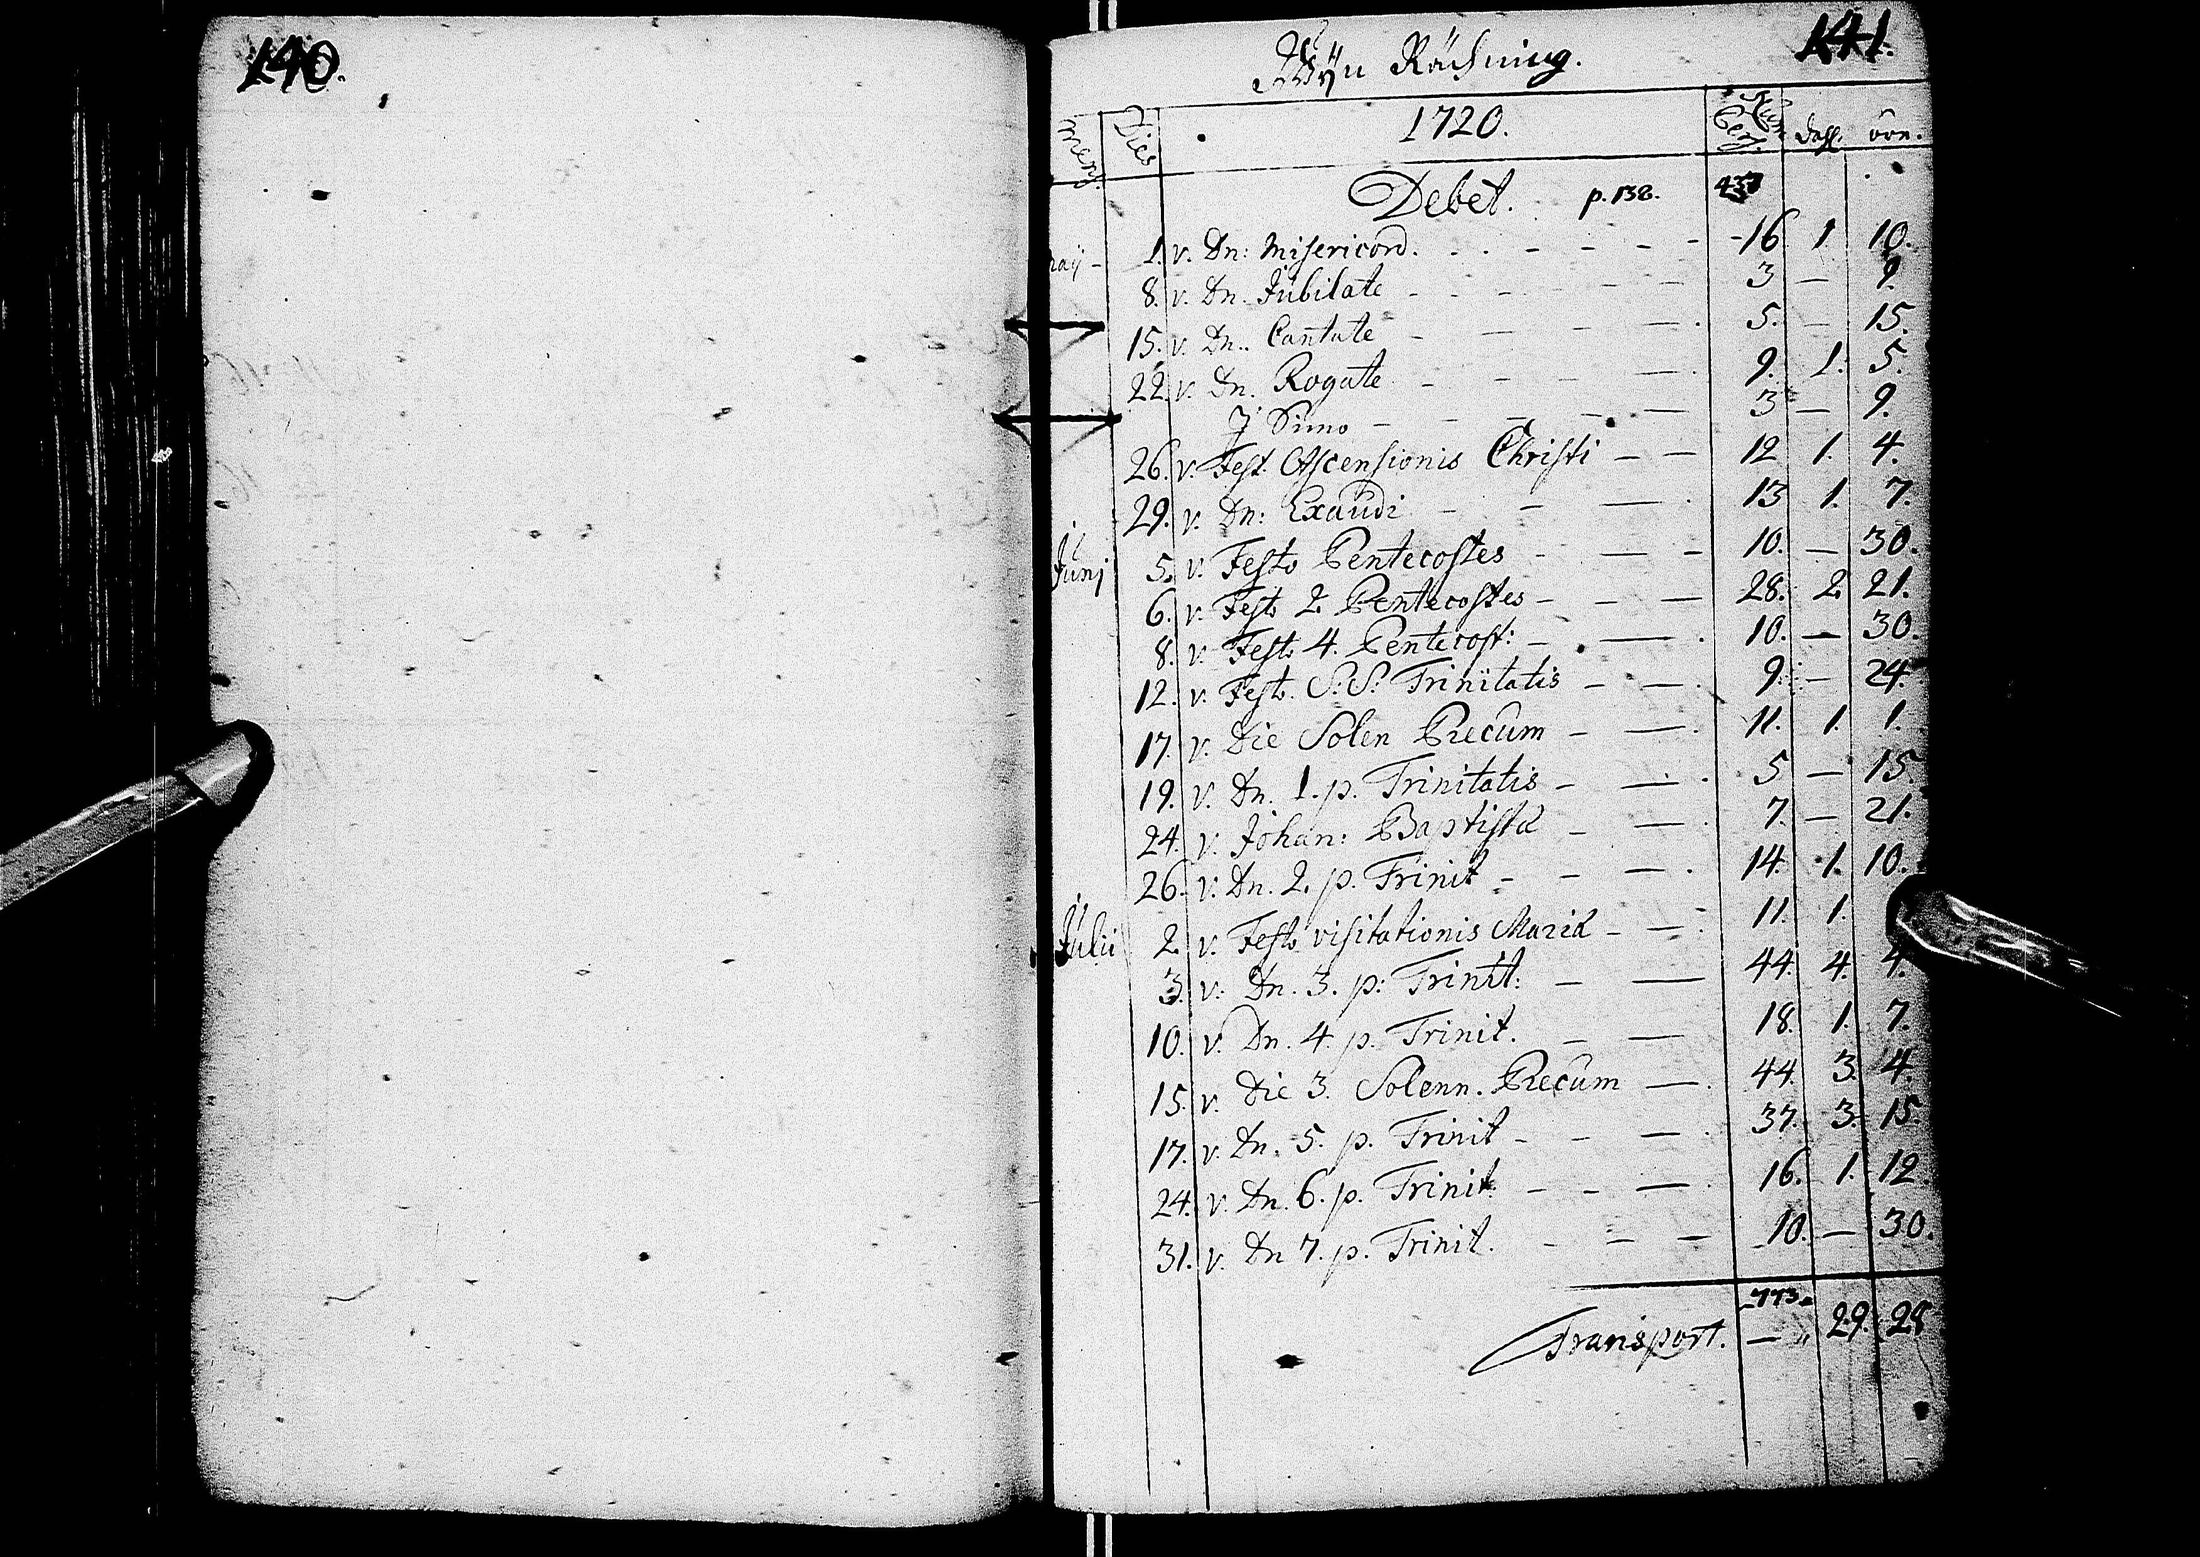 140.
141.
Wÿn Rächning.
Mens. Dies 1720. Num Pers. dahl. örn.
Debet. p. 138. 437
Maÿ - 1. v. Dn: Misericord. - 16 1 10.
8. v. Dn. Jubilate - 3 - 9.
15. v. Dn. Cantate - 5. - 15.
22. v. Dn. Rogate - 9. 1. 5.
J Simo - 3 - 9.
26. v. Fest. Ascensionis Christi - 12 1. 4.
29. v. Dn: Exaudi - 13 1. 7.
Junj 5. v. Festo Pentecostes - 10. - 30.
6. v. Festo 2. Pentecostes - 28. 2. 21.
8. v. Festo 4. Pentecost: - 10. - 30.
12. v. Festo. S.S. Trinitatis - 9. - 24.
17. v. Die Solen Precum - 11. 1. 1.
19. v. Dn. 1. p. Trinitatis - 5 - 15.
24. v. Johan: Baptistæ - 7. - 21.
26. v. Dn. 2. p. Trinit - 14. 1. 10.
Julii 2. v. Festo visitationis Mariæ - 11. 1.
3. v. Dn. 3. p: Trinit: - 44. 4. 4.
10. v. Dn. 4. p. Trinit. - 18. 1. 7.
15. v. Die 3. Solenn. Precum - 44. 3. 4.
17. v. Dn. 5. p. Trinit - 37. 3. 15.
24. v. Dn. 6. p. Trinit. - 16. 1. 12.
31. v. Dn 7. p. Trinit. - 10. - 30.
773.
Transport. - 29. 28